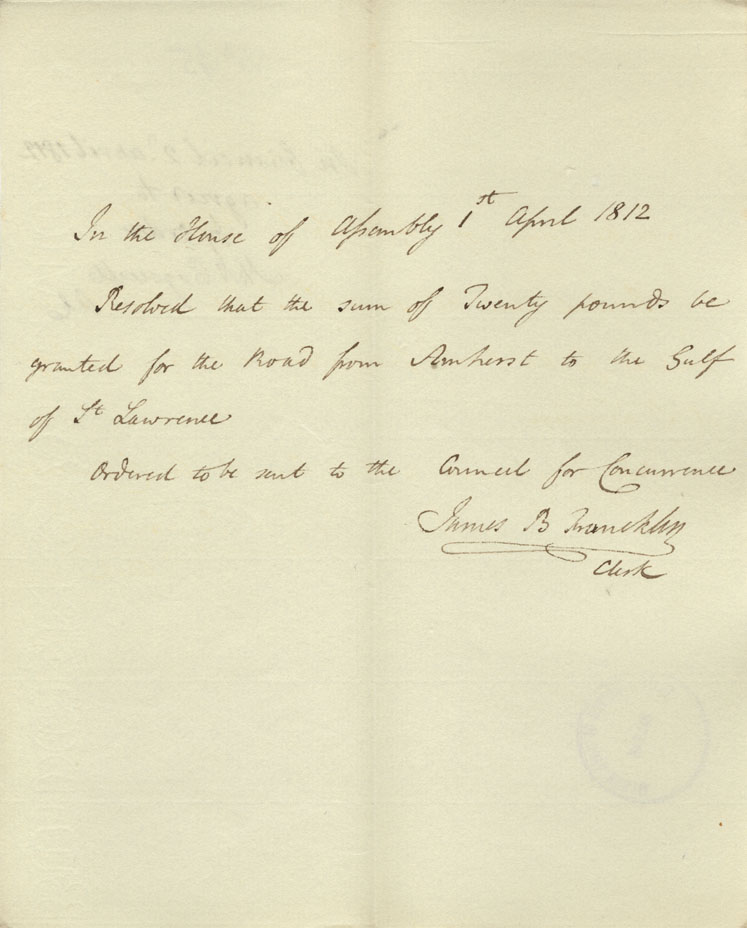 In the House of Assembly 1st April 1812
Resolved that the sum of Twenty pounds be
granted for the Road from Amherst to the Gulf
of St Lawrence
Ordered to be sent to the Council for Concurrence
James B Francklin
Clerk